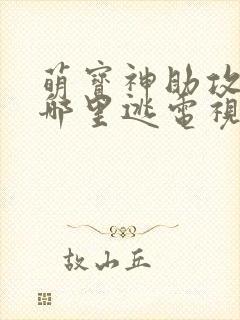 萌寶神助攻
哪里逃電視
故山丘